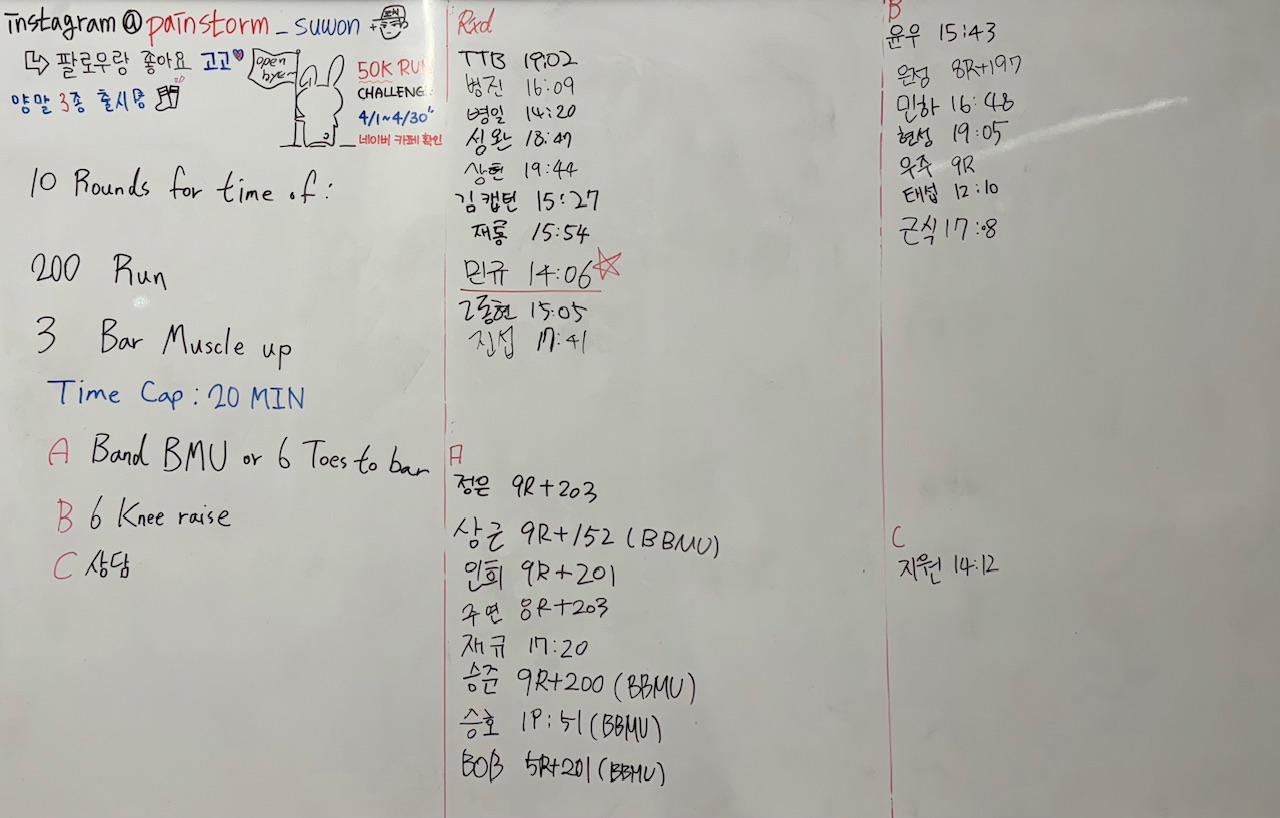 instagram@painstorm_suwon
팔로우랑 좋아요 고고
양말 3종 출시중
open
50K RUN
CHALLENGE
4/1~4/30
네이버 카페 확인
10 Rounds for time of:
200 Run
3 Bar Muscle up
Time Cap: 20 MIN
A Band BMU or 6 Toes to bar
B 6 Knee raise
C 상담
Rxd
TTB 19:02
병진 16:09
병일 14:20
싱완 18:47
상현 19:44
김캡틴 15:27
재룡 15:54
민규 14:06
동현 15:05
진섭 17:41
A
정은 9R+203
상근 9R+152 (BBMU)
인희 9R+201
주연 8R+203
재규 17:20
승준 9R+200 (BBMU)
승호 :51 (BBMU)
BOB 5R+201 (BBMU)
B
윤우 15:43
은정 8R+197
민하 16:48
현성 19:05
우주 9R
태섭 12:10
근식 17:08
C
지원 14:12